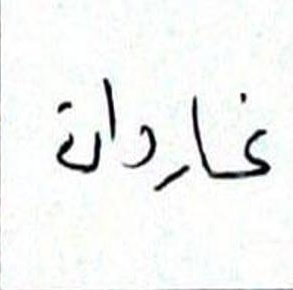 غاردانة